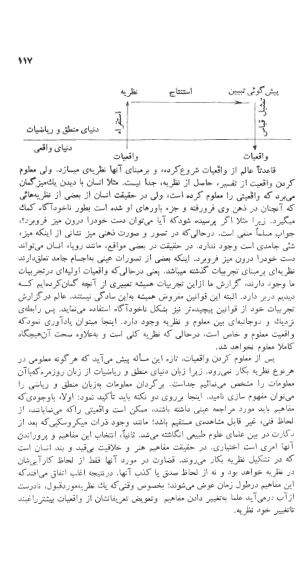 ۱۱۷
نظریه
استنتاج
پیش‌گوئی تبیین
استقراء
تمثیل قیاس
دنیای منطق و ریاضیات
دنیای واقعی
واقعیات
واقعیات
قاعدتاً عالم از واقعیات شروع‌کرده، و برمبنای آنها نظریه‌ی میسازد. ولی معلوم
کردن واقعیت از تفسیر، حاصل از نظریه، جدا نیست. مثلا انسان با دیدن یک‌میزگمان
می‌برد که واقعیتی را معلوم کرده است، ولی در حقیقت انسان از بعضی از نظریه‌هائی
که آنچنان در ذهن وی فرورفته و جزء باورهای او شده است بطور ناخودآگاه کمک
میگیرد. زیرا مثلا اگر پرسیده شودکه آیا می‌توان دست خودرا درون میز فروبرد؟،
جواب مسلماً منفی است، درحالی‌که در تصور و صورت ذهنی میز نشانی از اینکه میز،
شئی جامدی است وجود ندارد. در حقیقت در بعضی مواقع، مانند رویا، انسان می‌تواند
دست خودرا درون میز فروبرد. اینکه بعضی از تصورات عینی به‌اجسام جامد تعلق‌دارند
نظریه‌ای برمبنای تجربیات گذشته میباشد. یعنی درحالی‌که واقعیات اولیه‌ای درتجربیات
ما وجود دارند، گزارش ما ازاین تجربیات همیشه تعبیری از آنچه گمان‌کرده‌ایم کــه
دیدیم دربر دارد. البته این قوانین مفروض همیشه به‌این سادگی نیستند. عالم درگزارش
تجربیات خود از قوانین پیچیده‌تر نیز بشکل ناخودآگاه استفاده می‌نماید. پس رابطه‌ی
نزدیک و دوجانبه‌ای بین معلوم و نظریه وجود دارد. اینجا میتوان یادآوری نمودکه
واقعیت معلوم و خاص است، درحالی که نظریه کلی است و به‌علاوه سخت آن‌هیچگاه
کاملا معلوم نخواهد شد.
پس از معلوم کردن واقعیات، تازه این مسأله پیش می‌آید که هرگونه معلومی در
هرنوع نظریه بکار نمی‌رود. زیرا زبان دنیای منطق و ریاضیات از زبان روزمره‌که‌باآن
معلومات را مشخص می‌نمائیم جداست. برگردان معلومات به‌زبان منطق و ریاضی را
می‌توان مفهوم سازی نامید. اینجا برروی دو نکته باید تأکید نمود: اولا، باوجودی‌که
مفاهیم باید مورد مراجعه عینی داشته باشند، ممکن است واقعیتی راکه می‌نمایانند، از
لحاظ فنی، غیر قابل مشاهده‌ی مستقیم باشد؛ مانند وجود ذرات میکروسکپی‌که بعد از
دکارت در بین علمای علوم طبیعی انگاشته می‌شد. ثانیاً، انتخاب این مفاهیم و پروراندن
آنها امری است اختیاری. در حقیقت مفاهیم هنر و خلاقیت بی‌قید و بند انسان است
که در تشکیل نظریه بکار می‌روند. قضاوت در مورد آنها فقط از لحاظ کارآیی‌شان
در نظریه خواهد بود و نه از لحاظ صدق یا کذب آنها. درنتیجه اغلب اتفاق می‌افتدکه
این مفاهیم درطول زمان عوض می‌شوند؛ بخصوص وقتی‌که یک نظریه‌موردقبول، نادرست
ازآب درمی‌آید علما به‌تغییر دادن مفاهیم وتعویض تعریفاتشان از واقعیات بیشترراغبند
تاتغییر خود نظریه.